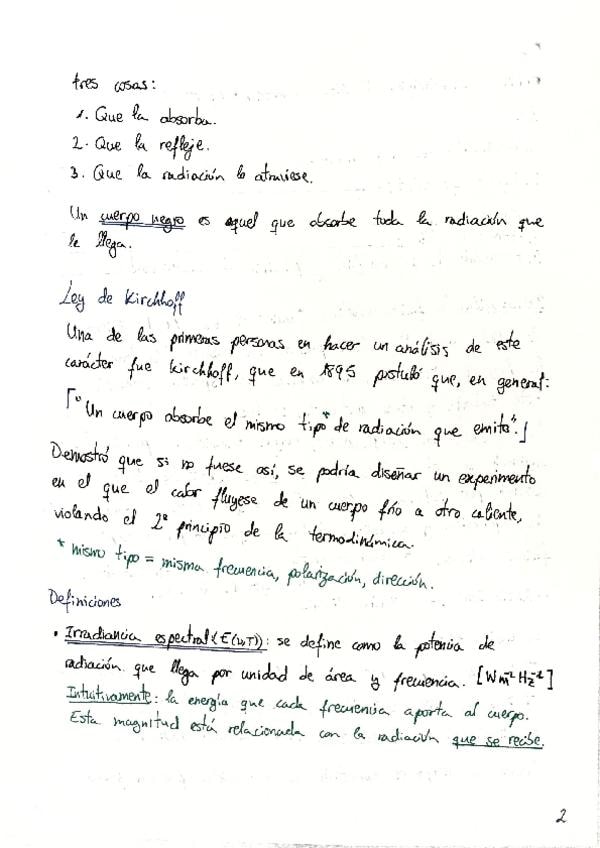 tres cosas:
1. Que la absorba.
2. Que la refleje.
3. Que la radiación lo atraviese.
Un cuerpo negro es aquel que absorbe toda la radiación que
le llega.
Ley de Kirchhoff
Una de las primeras personas en hacer un análisis de este
carácter fue Kirchhoff, que en 1895 postuló que, en general:
"Un cuerpo absorbe el mismo tipo* de radiación que emite".
Demostró que si no fuese así, se podría diseñar un experimento
en el que el calor fluyese de un cuerpo frío a otro caliente,
violando el 2º principio de la termodinámica.
* mismo tipo = misma frecuencia, polarización, dirección.
Definiciones
• Irradiancia espectral (E(ν,T)): se define como la potencia de
radiación que llega por unidad de área y frecuencia. [W m⁻² Hz⁻¹]
Intuitivamente: la energía que cada frecuencia aporta al cuerpo.
Esta magnitud está relacionada con la radiación que se recibe.
2